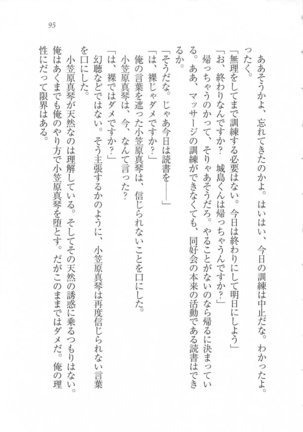 95
ああそうかよ、忘れてきたのかよ。はいはい、今日の訓練は中止だな。わかったよ。
ったく。
「無理をしてまで訓練する必要はない。今日は終わりにして明日にしよう」
「お、終わりなんですか？　城島くんは帰っちゃうんですか？」
帰っちゃうのかって、そりゃあそうだろ。やることがないのなら帰るに決まって
る。ああ、マッサージの訓練ができなくても、同好会の本来の活動である読書はでき
るか。
「そうだな。じゃあ今日は読書を――」
「は、裸じゃダメですか？」
俺の言葉を遮った小笠原真琴は、信じられないことを口にした。
……は？　小笠原真琴は、今、なんて言った？
「は、裸ではダメですか？」
幻聴などではない。そう主張するかのように、小笠原真琴は再度信じられない言葉
を口にした。
小笠原真琴が天然なのは理解している。そしてその天然の誘惑に乗るつもりはない。
俺はあくまでも俺のやり方で小笠原真琴を堕とす。だがこのままではダメだ。俺の理
性にだって限界はある。